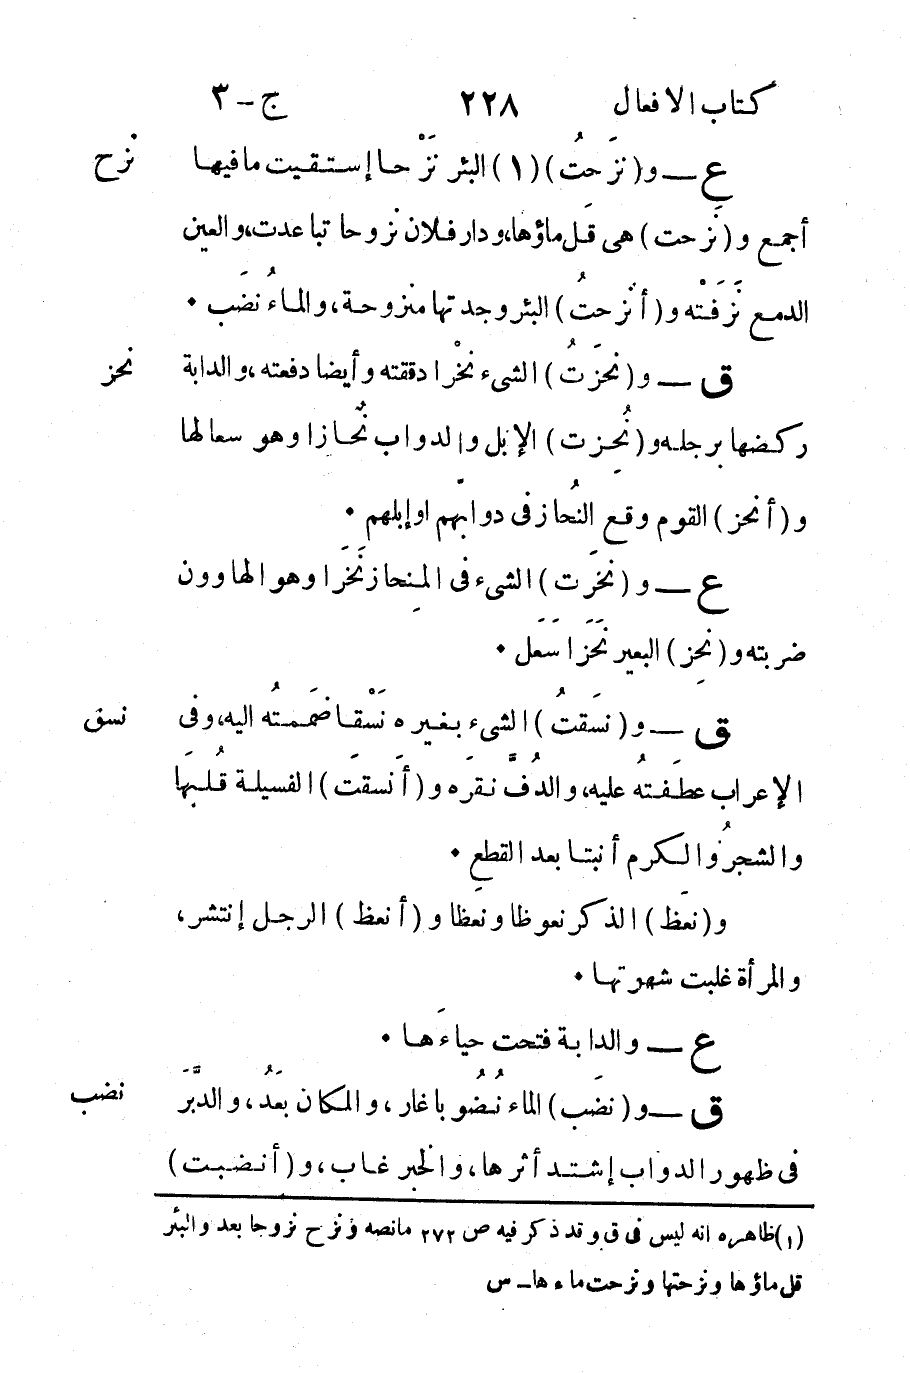 كتاب الافعال ٢٢٨ ج - ٣
ع ــ و(نزَحتُ) (١) البئر نَزْحا إستقيت مافيها نزح
أجمع و(نزِحت) هى قل ماؤها، ودار فلان نزوحا تباعدت، والعين
الدمع نَزَفَتْه و(أنزحتُ) البئر وجدتها منزوحة، والماءُ نضَب •
ق ــ و(نحَزتُ) الشىء نحْزا دققته وأيضا دفعته، والدابة نحز
ركضها برجله و(نُحِزت) الإبل والدواب نُحازا وهو سعالها
و(أنحز) القوم وقع النُحاز فى دوابّهم اوإبلهم •
ع ــ و(نحَزت) الشىء فى المِنحاز نَحَزا وهو الهاوون
ضربته و(نحِز) البعير نَحَزا سَعَل •
ق ــ و(نسَقتُ) الشىء بغيره نَسْقا ضمَمتُه اليه، وفى نسق
الإعراب عطَفتُه عليه، والدُفَّ نقَره و(أنسقَت) الفسيلة قُلبَها
والشجرُ والكرم أنبتا بعد القطع •
و(نعَظ) الذكر نعوظا ونعظا و(أنعظ) الرجل إنتشر،
والمرأة غلبت شهوتها •
ع ــ والدابة فتحت حياءَها •
ق ــ و(نضَب) الماء نُضُوبا غار، والمكان بَعُد، والدبَّرَ نضب
فى ظهور الدواب إشتد أثرها، والخبر غاب، و(أنضبت)
(١) ظاهره انه ليس فى ق وقد ذكر فيه ص ٢٧٢ مانصه ونزح نزوحا بعد والبئر
قل ماؤها ونزحتها ونزحت ماءها ــ س